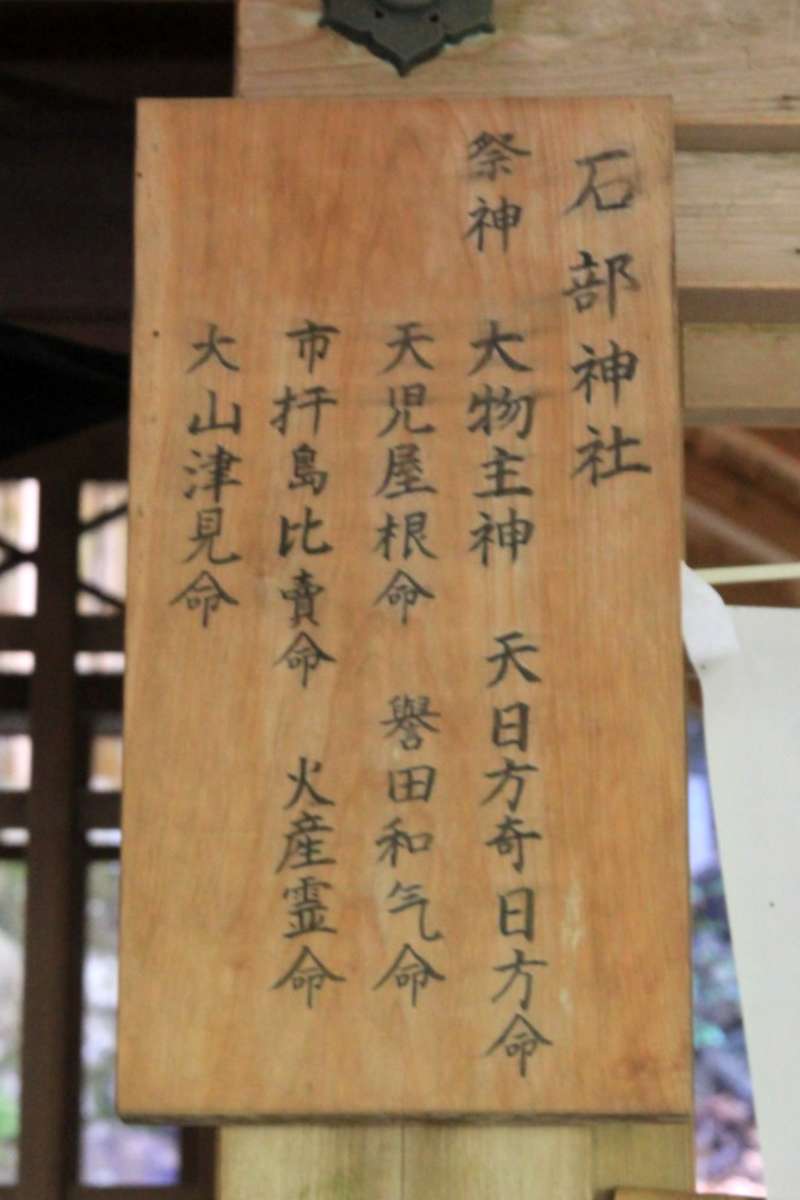 石部神社
祭神 大物主神 天日方奇日方命
天児屋根命 譽田和气命
市杵島比賣命 火産霊命
大山津見命